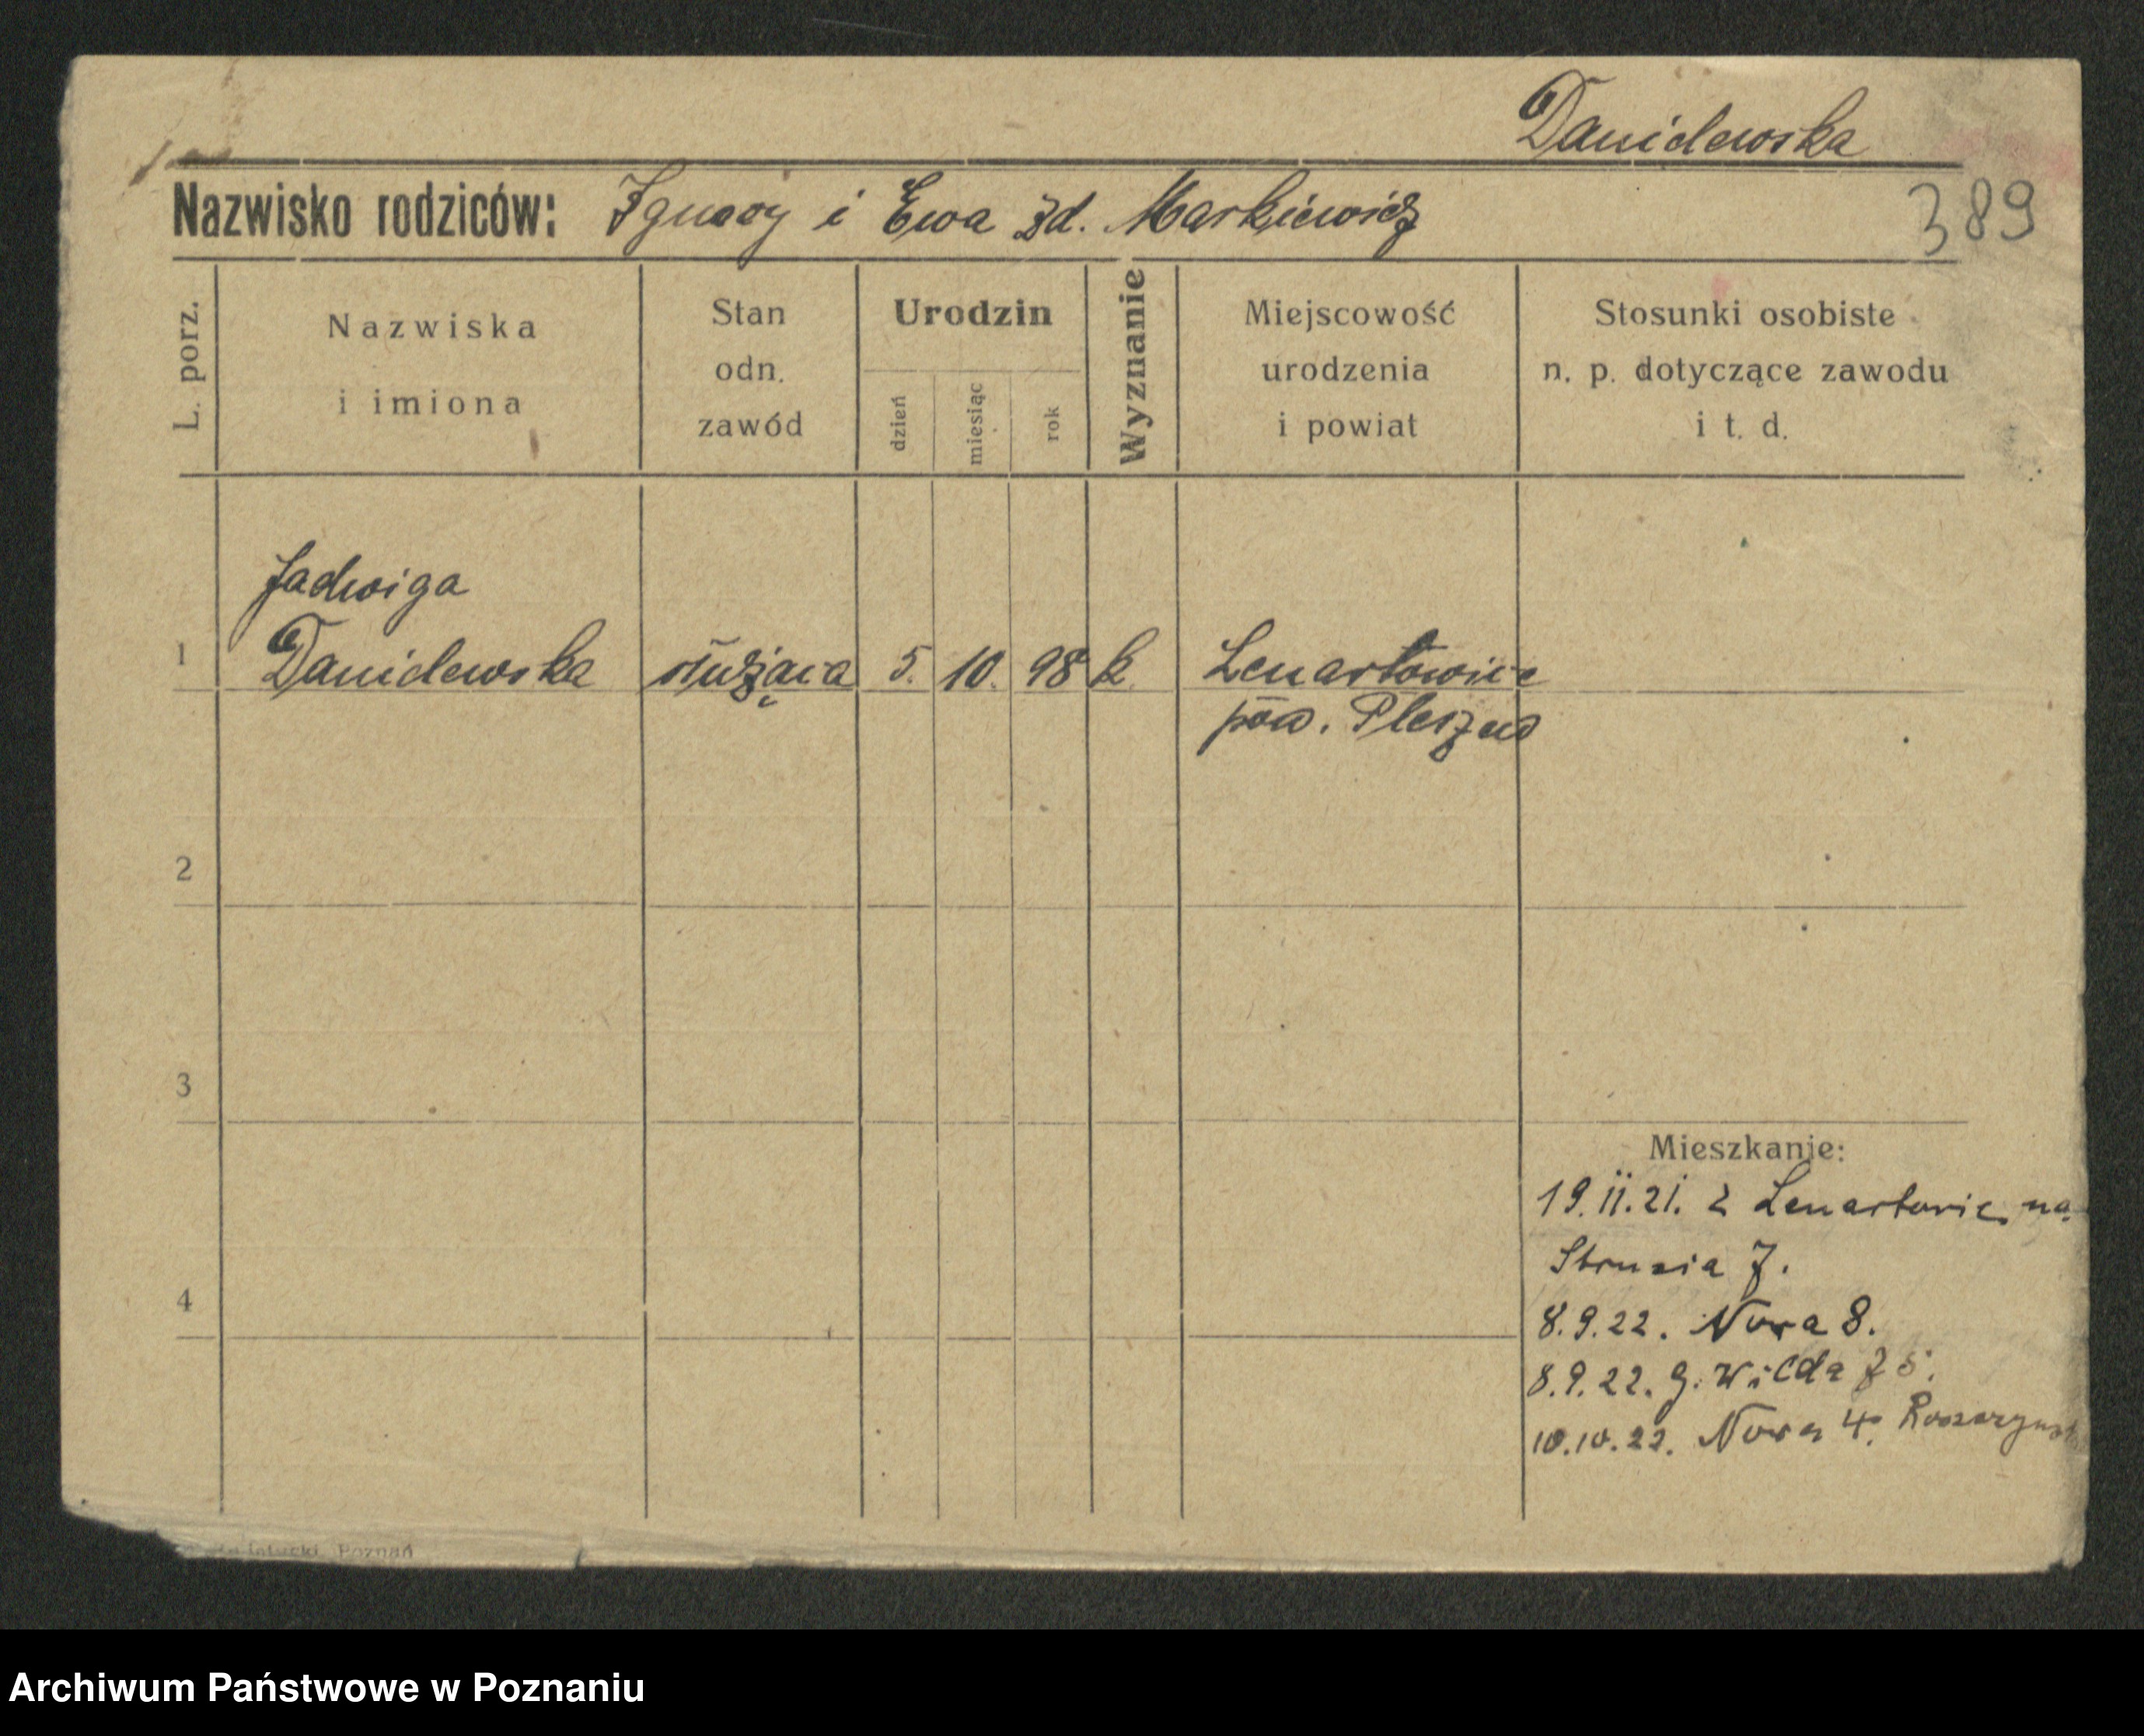 Danielewska
Nazwisko rodziców: Ignacy i Ewa zd. Markiewicz
389
L. porz.
Nazwiska
i imiona
Stan
odn.
zawód
Urodzin
dzień
miesiąc
rok
Wyznanie
Miejscowość
urodzenia
i powiat
Stosunki osobiste
n. p. dotyczące zawodu
i t. d.
Jadwiga
1 Danielewska służąca 5. 10. 98 k. Lenartowice
pow. Pleszew
2
3
4
Mieszkanie:
19.II.21. z Lenartowic na
Strusia 7.
8.9.22. Nowa 8.
8.9.22. G. Wilda 75.
10.10.22. Nowa 4.
Poznań
Archiwum Państwowe w Poznaniu